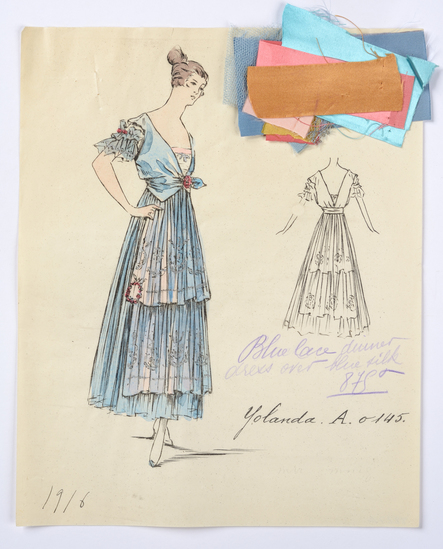 Blue lace dinner
dress over blue silk
875
Yolanda. A. o 145.
1916